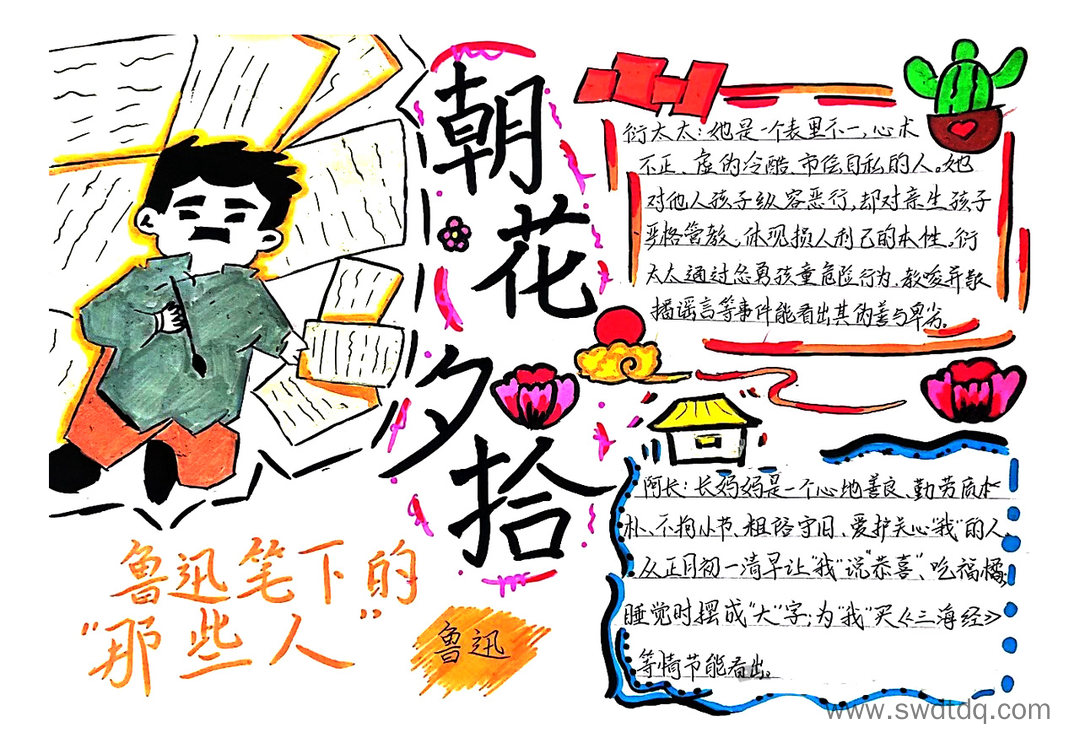 朝花夕拾
鲁迅笔下的
“那些人”
鲁迅
衍太太：她是一个表里不一，心术
不正、虚伪冷酷、市侩自私的人。她
对他人孩子纵容恶行，却对亲生孩子
严格管教，体现损人利己的本性。衍
太太通过怂勇孩童危险行为、教唆并散
播谣言等事件能看出其伪善与卑劣。
阿长：长妈妈是一个心地善良、勤劳质朴
朴、不拘小节、粗陋守旧、爱护关心“我”的人。
从正月初一清早让“我”说“恭喜”、吃福橘，
睡觉时摆成“大”字；为“我”买《三海经》
等情节能看出。
www.swdtdq.com